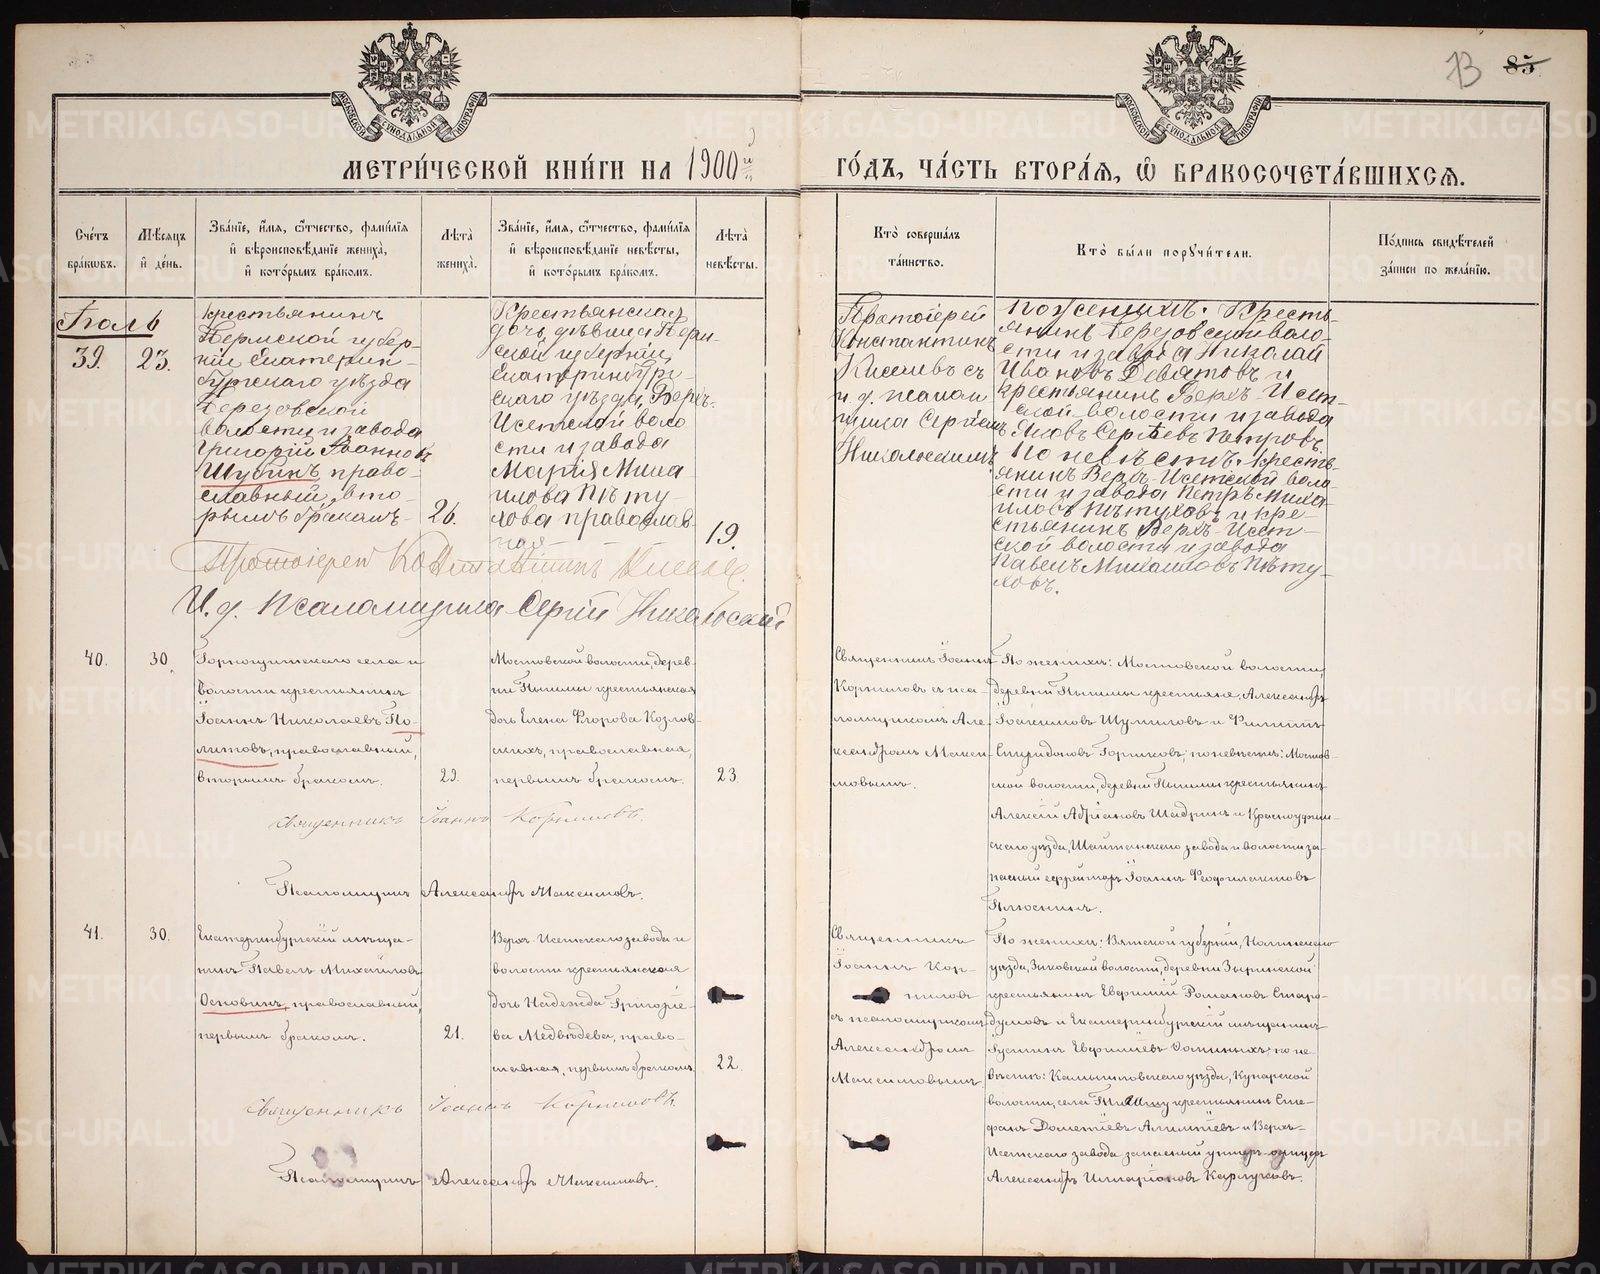 МОСКОВСКОЙ СѴНОДАЛЬНОЙ ТИПОГРАФІИ
МОСКОВСКОЙ СѴНОДАЛЬНОЙ ТИПОГРАФІИ
73 85
МЕТРИ́ЧЕСКОЙ КНИ́ГИ НА 1900й
ГО́ДЪ, ЧА́СТЬ ВТОРА́Я, Ѡ҆ БРАКОСОЧЕТА́ВШИХСЯ.
Сче́тъ бра́кѡвъ.
Мѣ́сяцъ и҆ де́нь.
Зва́нїе, и҆́мя, ѻ҆́тчество, фами́лїя
и҆ вѣроисповѣ́данїе жениха̀,
и҆ кото́рымъ бра́комъ.
Лѣ́та жениха̀.
Зва́нїе, и҆́мя, ѻ҆́тчество, фами́лїя
и҆ вѣроисповѣ́данїе невѣ́сты,
и҆ кото́рымъ бра́комъ.
Лѣ́та невѣ́сты.
Кто̀ соверша́лъ та́инство.
Кто̀ бы́ли порꙋчи́тели.
По́дпись свидѣ́телей за́писи по жела́нїю.
Іюль
39.
23.
Крестьянинъ
Пермской губер-
ніи Екатерин-
бургскаго уѣзда
Березовской
волости и завода
Григорій Іванновъ
Шубинъ право-
славный, вто-
рымъ бракомъ
26.
Крестьянская
дочь, дѣвица Перм-
ской губерніи
Екатеринбург-
скаго уѣзда, Верхъ-
Исетской воло
сти и завода
Марія Миха
илова Пѣту-
хова православ-
ная
19.
Протоіерей
Константинъ
Киселевъ съ
и. д. псалом
щика Сергіемъ
Никольскимъ
По женихѣ: Кресть-
янинъ Березовской воло-
сти и завода Николай
Ивановъ Девятовъ и
крестьянинъ Верхъ-Исет-
ской волости и завода
Яковъ Сергѣевъ Петровъ.
По невѣстѣ: кресть-
янинъ Верхъ-Исетской воло-
сти и завода Петръ Миха-
иловъ Пѣтуховъ и кре-
стьянинъ Верхъ-Исет-
ской волости и завода
Павелъ Михаиловъ Пѣту-
ховъ.
Протоіерей Константинъ Киселевъ.
И. д. Псаломщика Сергій Никольский
40.
30.
Горнощитскаго села и
волости крестьянинъ
Іоаннъ Николаевъ По-
литовъ, православный,
вторымъ бракомъ.
29.
Мостовской волости, дерев-
ни Пышмы крестьянская
дочь Елена Ѳгорова Козлов-
скихъ, православная,
первымъ бракомъ.
23.
Священникъ Іоаннъ
Корниловъ съ пса-
ломщикомъ Але-
ксандромъ Макси-
мовымъ.
По женихѣ: Мостовской волости,
деревни Пышмы крестьяне, Александръ
Іоакимовъ Шумиловъ и Филиппъ
Спиридоновъ Горшковъ; по невѣстѣ: Мостов-
ской волости, деревни Пышмы крестьянинъ
Алексій Адріановъ Шадринъ и Красноуфим-
скаго уѣзда, Шайтанскаго завода и волости за-
пасный ефрейторъ Іоаннъ Феофилактовъ
Плюснинъ.
Священникъ Іоаннъ Корниловъ.
Псаломщикъ Александръ Максимовъ.
41.
30.
Екатеринбургскій мѣща-
нинъ Павелъ Михайловъ
Основинъ, православный,
первымъ бракомъ.
21.
Верхъ-Исетскаго завода и
волости крестьянская
дочь Надежда Григоріе-
ва Медвѣдева, право-
славная, первымъ бракомъ.
22.
Священникъ
Іоаннъ Кор-
ниловъ
съ псаломщикомъ
Александромъ
Максимовымъ
По женихѣ: Вятской губерніи, Нолинскаго
уѣзда, Зыковской волости, деревни Зыринской
крестьянинъ Евфимій Романовъ Старо-
думовъ и Екатеринбургскій мѣщанинъ
Іустинъ Евфиміевъ Фоминыхъ; по не-
вѣстѣ: Камышловскаго уѣзда, Кунарской
волости, села крестьянинъ Сте-
фанъ Дометіевъ Алимпіевъ и Верхъ-
Исетскаго завода запасный унтеръ-офицеръ
Александръ Илларіоновъ Карпуховъ.
Священникъ Іоаннъ Корниловъ.
Псаломщикъ Александръ Максимовъ.
METRIKI.GASO-URAL.RU